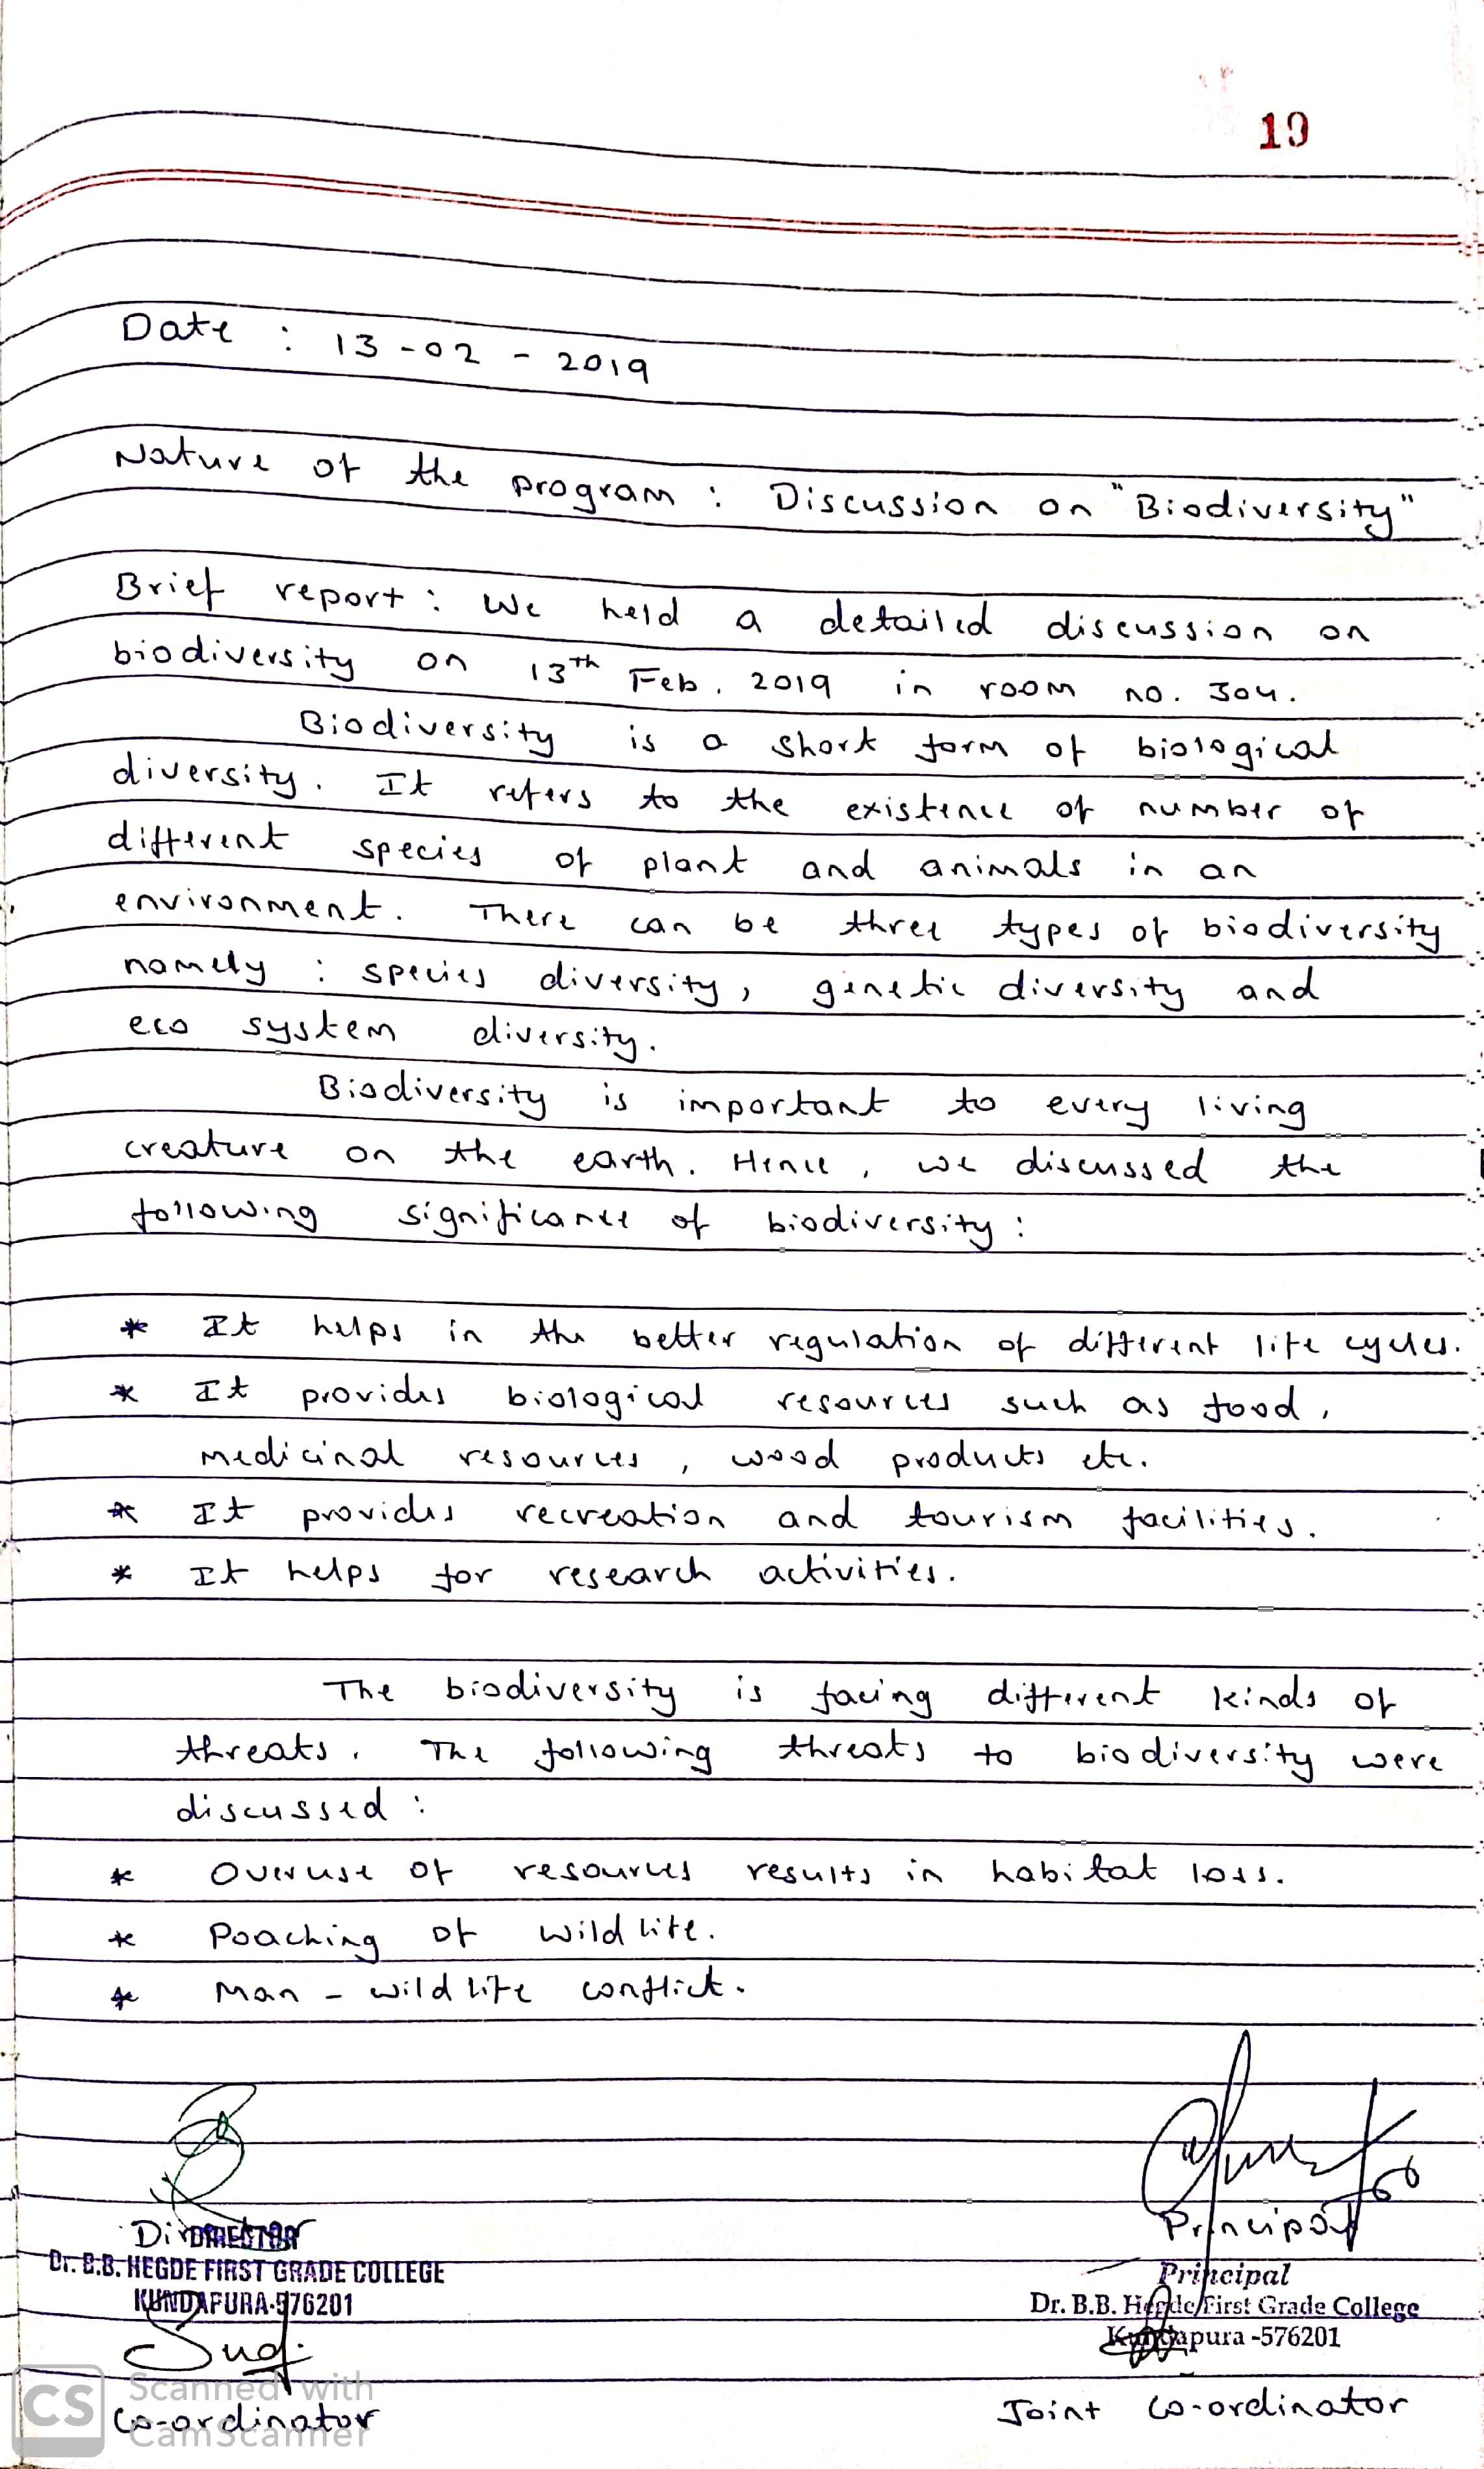 19
Date : 13-02-2019
Nature of the program : Discussion on "Biodiversity"
Brief report : We held a detailed discussion on
biodiversity on 13th Feb. 2019 in room no. 304.
Biodiversity is a short form of biological
diversity. It refers to the existence of number of
different species of plant and animals in an
environment. There can be three types of biodiversity
namely : species diversity, genetic diversity and
eco system diversity.
Biodiversity is important to every living
creature on the earth. Hence, we discussed the
following significance of biodiversity :
* It helps in the better regulation of different life cycles.
* It provides biological resources such as food,
medicinal resources, wood products etc.
* It provides recreation and tourism facilities.
* It helps for research activities.
The biodiversity is facing different kinds of
threats. The following threats to biodiversity were
discussed :
* Overuse of resources results in habitat loss.
* Poaching of wild life.
* Man - wild life conflict.
Director Principal
DIRECTOR
Dr. B.B. HEGDE FIRST GRADE COLLEGE
KUNDAPURA-576201
Principal
Dr. B.B. Hegde First Grade College
Kundapura -576201
Co-ordinator Joint Co-ordinator
CS Scanned with
CamScanner